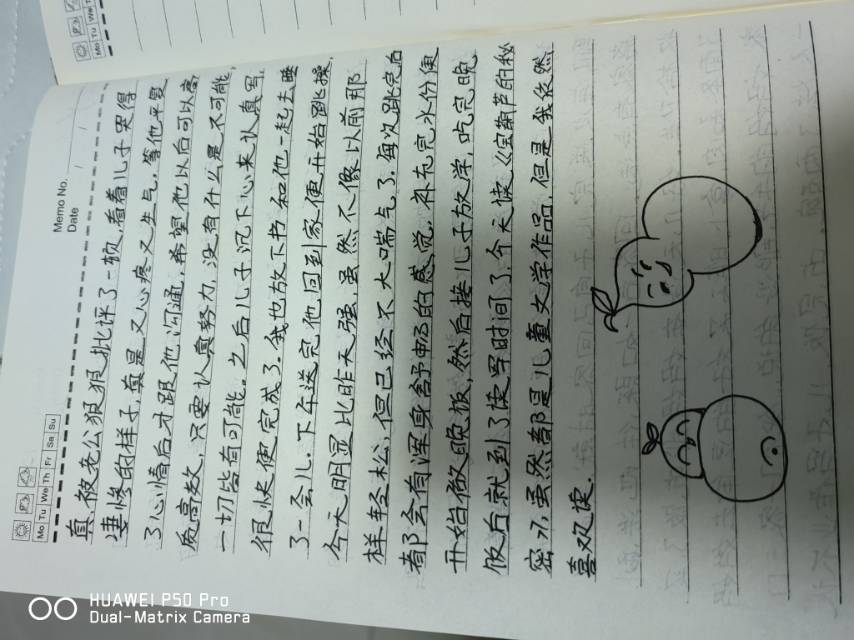 Memo No.
Date / /
Mo Tu We Th Fr Sa Su
真,被老公狠狠批评了一顿,看着儿子哭得
凄惨的样子,真是又心疼又生气,等他平复
了心情后才跟他沟通,希望他以后可以高
质高效,只要认真努力,没有什么是不可能,
一切皆有可能。之后儿子沉下心来认真写,
很快便完成了。我也放下书和他一起去睡
了一会儿。下午送完他,回到家便开始跳操,
今天明显比昨天强,虽然不像以前那
样轻松,但已经不大喘气了。每次跳完后
都会有浑身舒畅的感觉。补充完水份便
开始做晚饭,然后接儿子放学,吃完晚
饭后就到了读写时间了,今天读《宝葫芦的秘
密》,虽然都是儿童文学作品,但是我依然
喜欢读.
Mo Tu We
HUAWEI P50 Pro
Dual-Matrix Camera